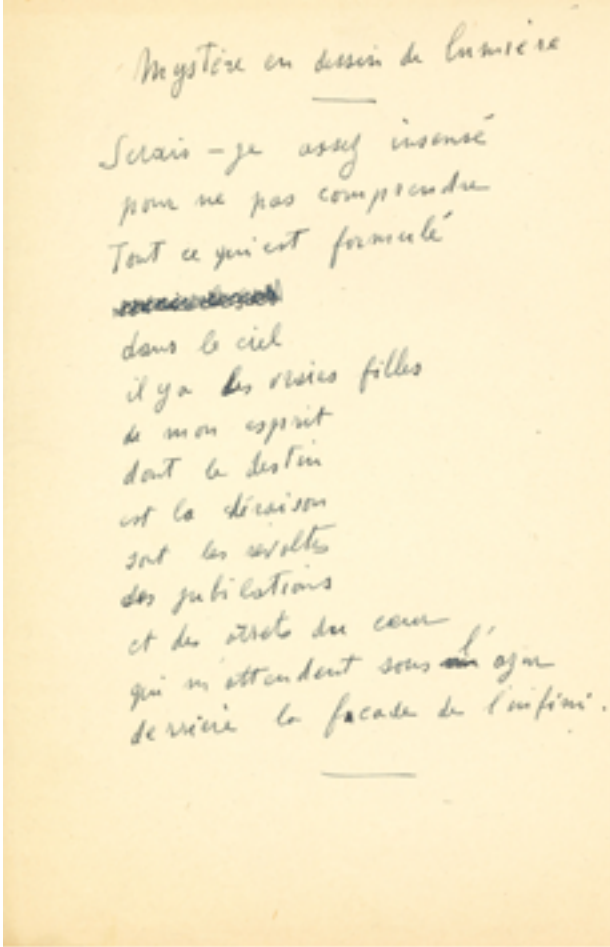 Mystère en dessin de lumière
Serais-je assez insensé
pour ne pas comprendre
Tout ce qui est formulé
dans le ciel
il y a les vraies filles
de mon esprit
dont le destin
est la déraison
sont les révoltes
des jubilations
et des du cœur
qui m'attendent sous l'azur
derrière la facade de l'infini.